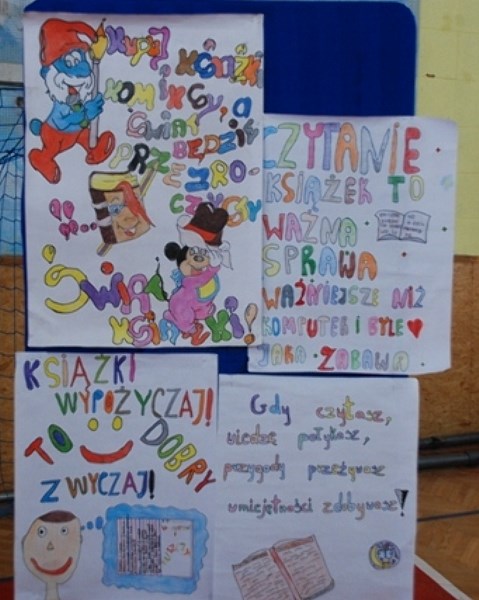 Kupuj książki
KOMIKSY, a
świat
będzie
PRZE
ZRO-
CZYSTY
Świat
książki!
CZYTANIE
KSIĄŻEK TO
WAŻNA
SPRAWA
WAŻNIEJSZE NIŻ
KOMPUTER I BYLE
JAKA ZABAWA
KSIĄŻKI
WYPOŻYCZAJ!
TO DOBRY
ZWYCZAJ!
Gdy czytasz,
wiedzę połykasz,
przygody przeżywasz
umiejętności zdobywasz!